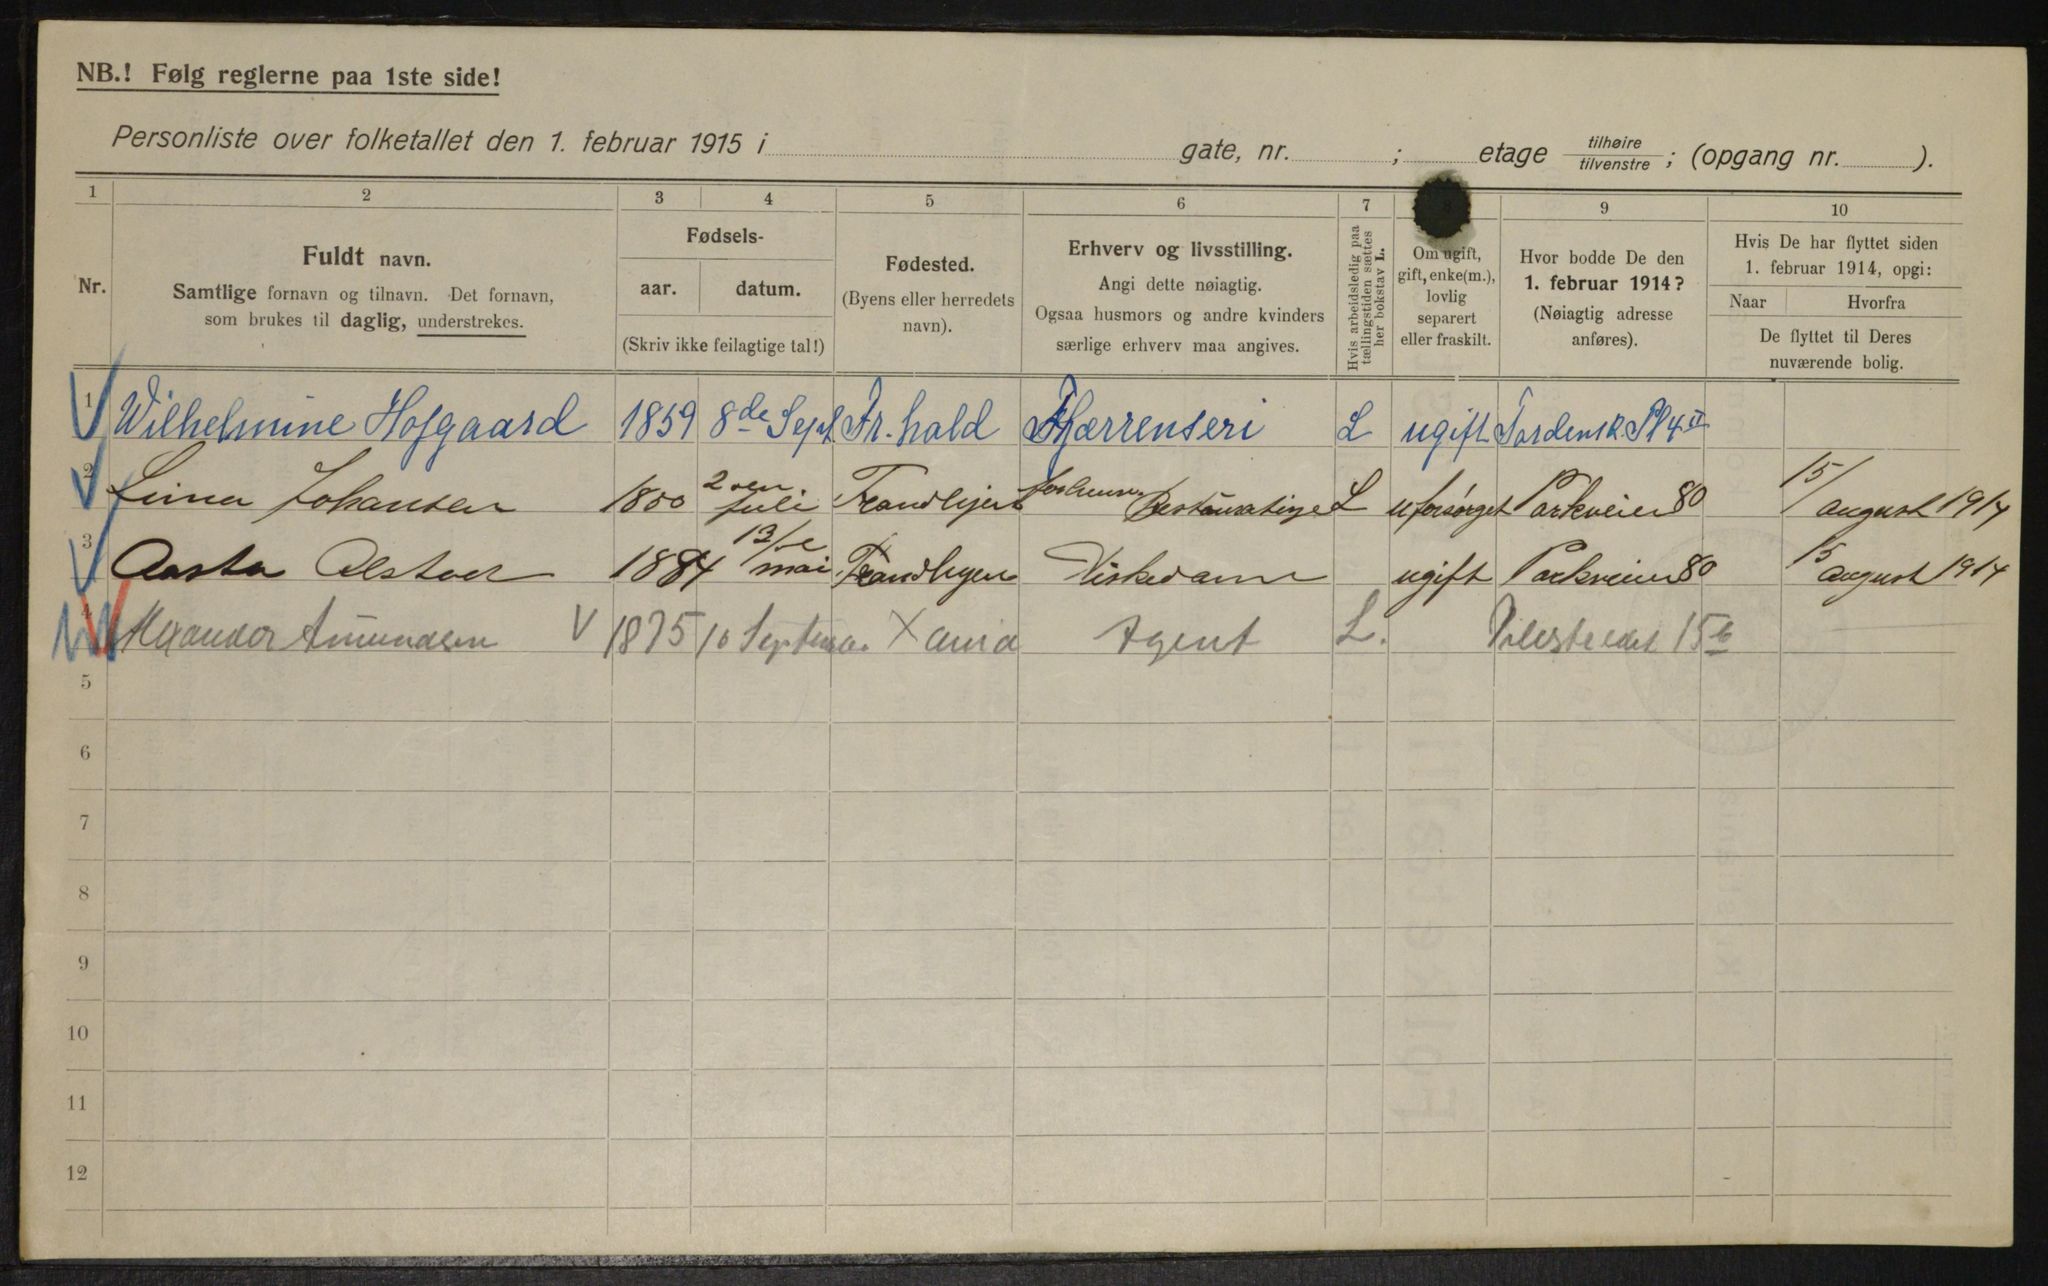 NB.! Følg reglerne paa 1ste side!
Personliste over folketallet den 1. februar 1915 i gate, nr. ; etage tilhøire tilvenstre ; (opgang nr. ).
1 2 3 4 5 6 7 8 9 10
Nr.
Fuldt navn.
Samtlige fornavn og tilnavn. Det fornavn,
som brukes til daglig, understrekes.
Fødsels-
aar. datum.
(Skriv ikke feilagtige tal!)
Fødested.
(Byens eller herredets
navn).
Erhverv og livsstilling.
Angi dette nøiagtig.
Ogsaa husmors og andre kvinders
særlige erhverv maa angives.
Hvis arbeidsledig paa
tællingstiden sættes
her bokstav L.
Om ugift,
gift, enke(m.),
lovlig
separert
eller fraskilt.
Hvor bodde De den
1. februar 1914?
(Nøiagtig adresse
anføres).
Hvis De har flyttet siden
1. februar 1914, opgi:
Naar Hvorfra
De flyttet til Deres
nuværende bolig.
1 Wilhelmine Hofgaard 1859 8de Sept Fr. hald L ugift Tordensk. Pl 4 II
2 Johansen 1850 2den juli L uforsørget Parkveien 80 15/ august 1914
3 Aasta 1884 13/de mai ugift Parkveien 80 15 august 1914
4 Alexander Amundsen V 1875 10 September Xania Agent L. Pilestrædet 15b
5
6
7
8
9
10
11
12